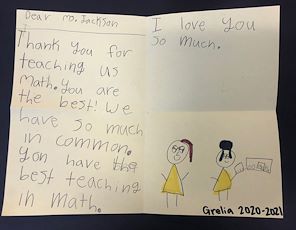 Dear Ms. Jackson
Thank you for
teaching us
math. You are
the best! We
have so much
in common.
You have the
best teaching
in math.
I love you
so much.
Grelia 2020-2021